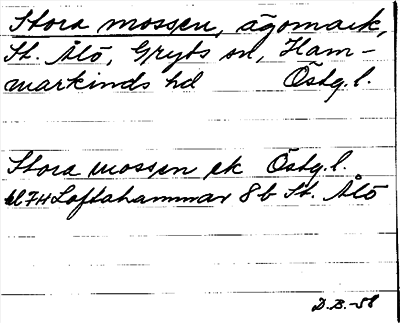 Stora mossen, ägomark,
St. Ålö, Gryts sn, Ham-
markinds hd Östg.l.
Stora mossen ek Östg.l.
bl 7H Loftahammar 8b St. Ålö
D.B.-58